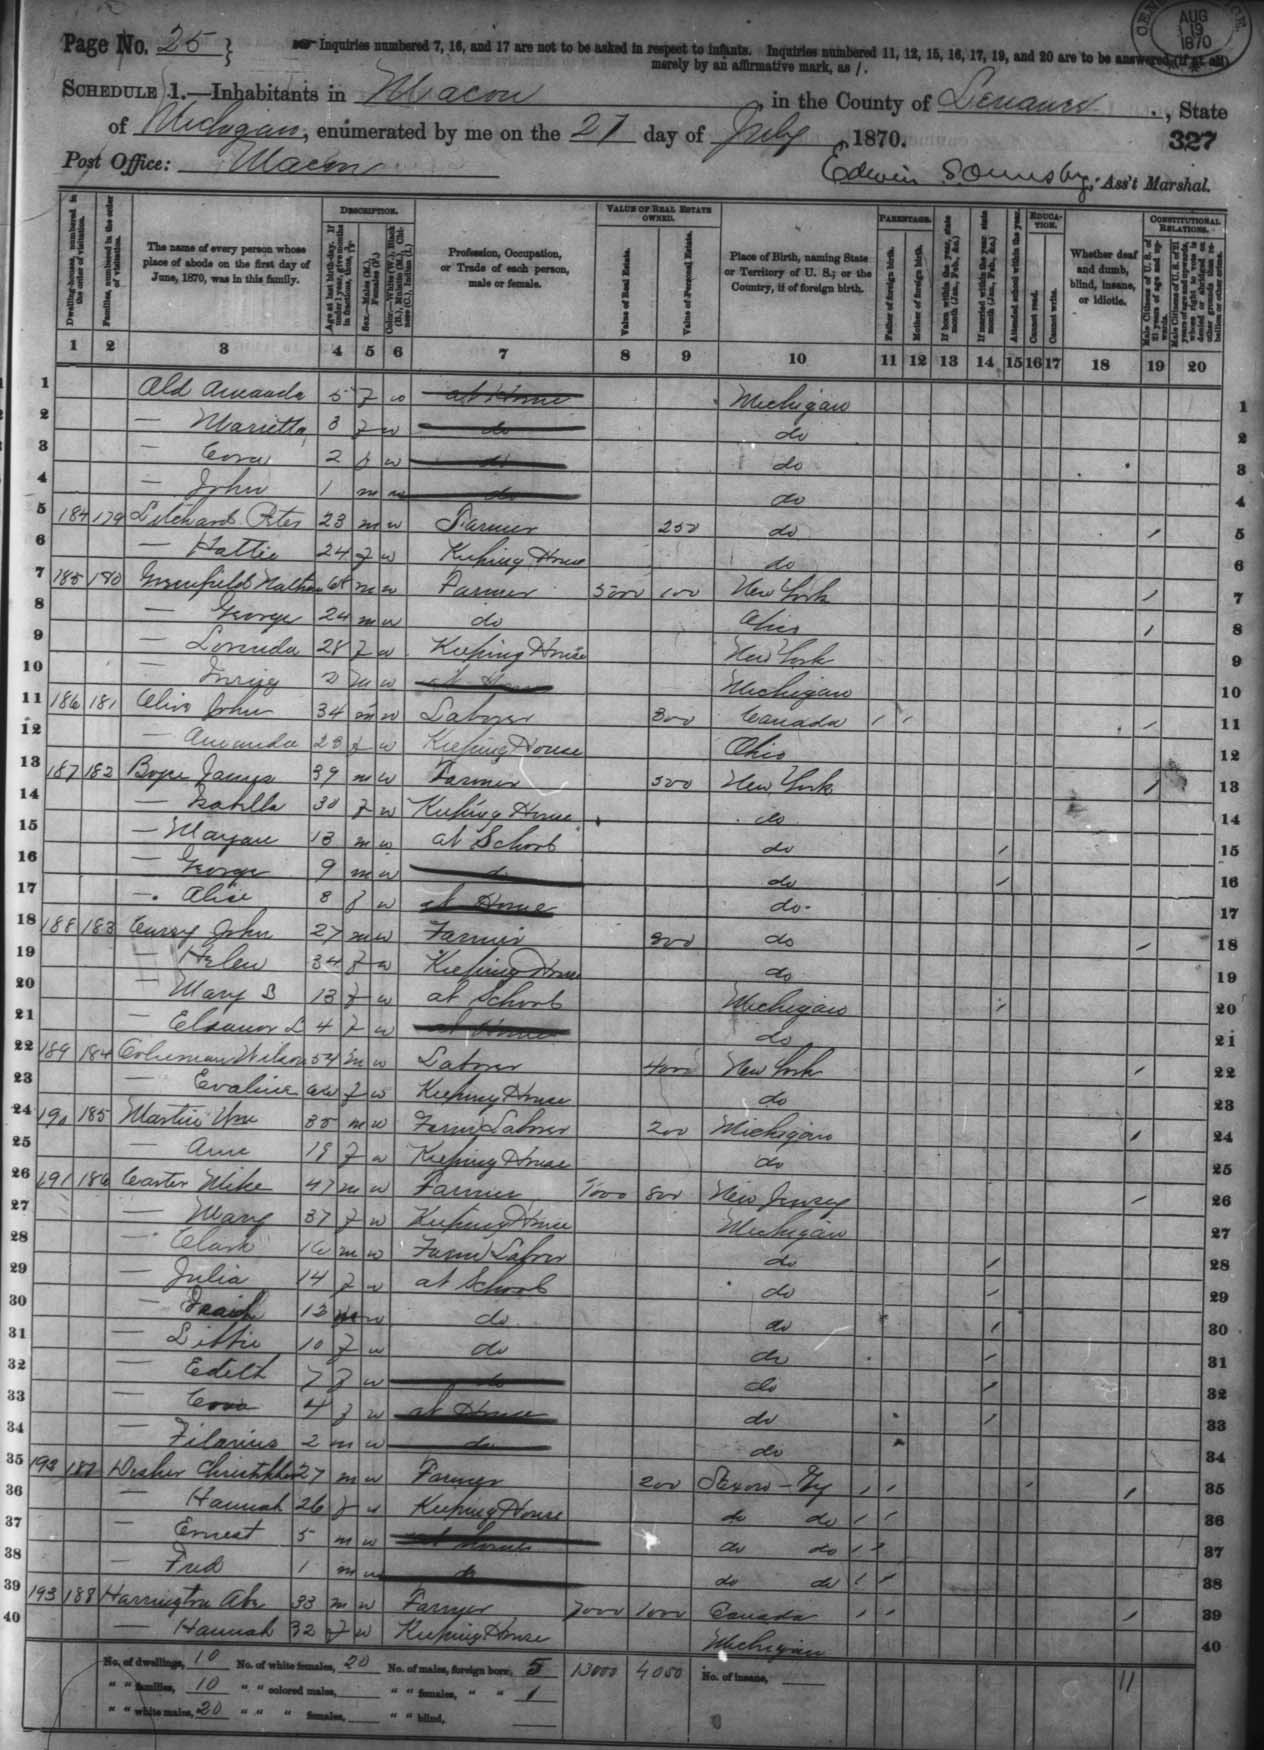 Page No. 25
Inquiries numbered 7, 16, and 17 are not to be asked in respect to infants. Inquiries numbered 11, 12, 15, 16, 17, 19, and 20 are to be answered (if at all)
merely by an affirmative mark, as /.
AUG 19 1870
SCHEDULE 1.—Inhabitants in Macon, in the County of Lenawee, State
of Michigan, enumerated by me on the 27 day of July, 1870. 327
Post Office: Macon
Edwin Ormsby, Ass't Marshal.
DESCRIPTION. VALUE OF REAL ESTATE OWNED. PARENTAGE. EDUCATION. CONSTITUTIONAL RELATIONS.
Dwelling-houses, numbered in the order of visitation.
Families, numbered in the order of visitation.
The name of every person whose place of abode on the first day of June, 1870, was in this family.
Age at last birth-day. If under 1 year, give months in fractions, thus, 3/12
Sex.—Males (M.), Females (F.)
Color.—White (W.), Black (B.), Mulatto (M.), Chinese (C.), Indian (I.)
Profession, Occupation, or Trade of each person, male or female.
Value of Real Estate.
Value of Personal Estate.
Place of Birth, naming State or Territory of U. S.; or the Country, if of foreign birth.
Father of foreign birth.
Mother of foreign birth.
If born within the year, state month (Jan., Feb., &c.)
If married within the year, state month (Jan., Feb., &c.)
Attended school within the year.
Cannot read.
Cannot write.
Whether deaf and dumb, blind, insane, or idiotic.
Male Citizens of U. S. of 21 years of age and upwards.
Male Citizens of U. S. of 21 years of age and upwards, whose right to vote is denied or abridged on other grounds than rebellion or other crime.
1 2 3 4 5 6 7 8 9 10 11 12 13 14 15 16 17 18 19 20
1 Ald Amanda 5 f w at Home Michigan 1
2 — Marietta 3 f w do do 2
3 — Cora 2 f w do do 3
4 — John 1 m w do do 4
5 184 179 Peter 23 m w Farmer 250 do / 5
6 — Hattie 24 f w Keeping House do 6
7 185 180 Greenfield Nathan 68 m w Farmer 5000 100 New York / 7
8 — George 24 m w do Ohio / 8
9 — Lorinda 28 f w Keeping House New York 9
10 — 2 m w at Home Michigan 10
11 186 181 Olive John 34 m w Laborer 300 Canada / / / 11
12 — Amanda 23 f w Keeping House Ohio 12
13 187 182 James 39 m w Farmer 500 New York / 13
14 — Isabella 30 f w Keeping House do 14
15 — 13 m w at School do / 15
16 — George 9 m w do do / 16
17 — Alice 8 f w at Home do 17
18 188 183 John 27 m w Farmer 800 do / 18
19 — Helen 34 f w Keeping House do 19
20 — Mary B 13 f w at School Michigan / 20
21 — Eleanor L 4 f w at Home do 21
22 189 184 Wilson 54 m w Laborer 400 New York / 22
23 — Evaline f w Keeping House do 23
24 190 185 Martin Wm 35 m w Farm Laborer 200 Michigan / 24
25 — Ann 19 f w Keeping House do 25
26 191 186 Carter Mike 47 m w Farmer 1000 800 New Jersey / 26
27 — Mary 37 f w Keeping House Michigan 27
28 — Clark 16 m w Farm Labor do / 28
29 — Julia 14 f w at School do / 29
30 — 12 m w do do / 30
31 — Libbie 10 f w do do / 31
32 — Edith 7 f w do do / 32
33 — Cora 4 f w at Home do / 33
34 — 2 m w do do 34
35 192 187 Christopher 27 m w Farmer 200 Saxony / / / / 35
36 — Hannah 26 f w Keeping House do do / / 36
37 — Ernest 5 m w at Home do do / / 37
38 — Fred 1 m w do do do / / 38
39 193 188 Harrington Abe 33 m w Farmer 7000 1000 Canada / / / 39
40 — Hannah 32 f w Keeping House Michigan 40
No. of dwellings, 10 No. of white females, 20 No. of males, foreign born, 5 13000 4050 No. of insane, 11
" " families, 10 " " colored males, " " females, " " 1
" " white males, 20 " " " females, " " blind,